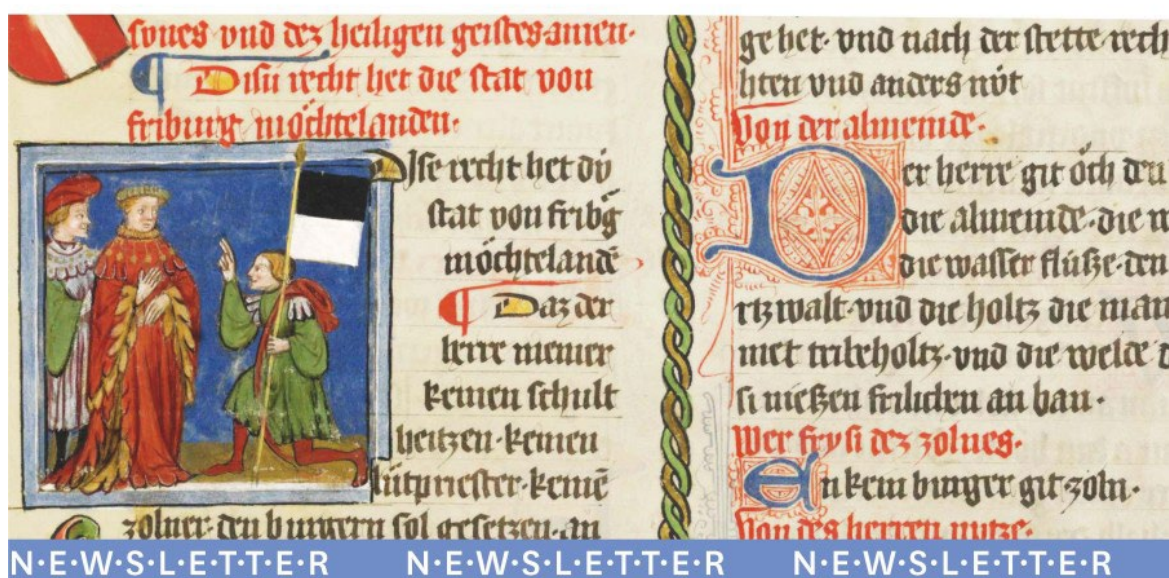 sunes vnd dez heiligen geistes amen·
Disü recht het die stat von
friburg möchtelanden·
Dise recht het dü
stat von fribg
möchtelandē
Daz der
herre niemer
keinen schult
heitzen· keinen
lütpriester· keinē
zolner· den burgern sol gesetzen· an
ge het· vnd nach der stette rech
hten vnd anders nöt
Von der almeinde·
Der herre git öch den
die almeinde· die w
die wasser flüsze· den
rtzwalt· vnd die holtz die man
met tribeholtz· vnd die welde d
si nieszen frilichen an ban·
Wer fry si dez zolnes·
Enkein burger git zoln·
Von des herren nutze·
N·E·W·S·L·E·T·T·E·R N·E·W·S·L·E·T·T·E·R N·E·W·S·L·E·T·T·E·R